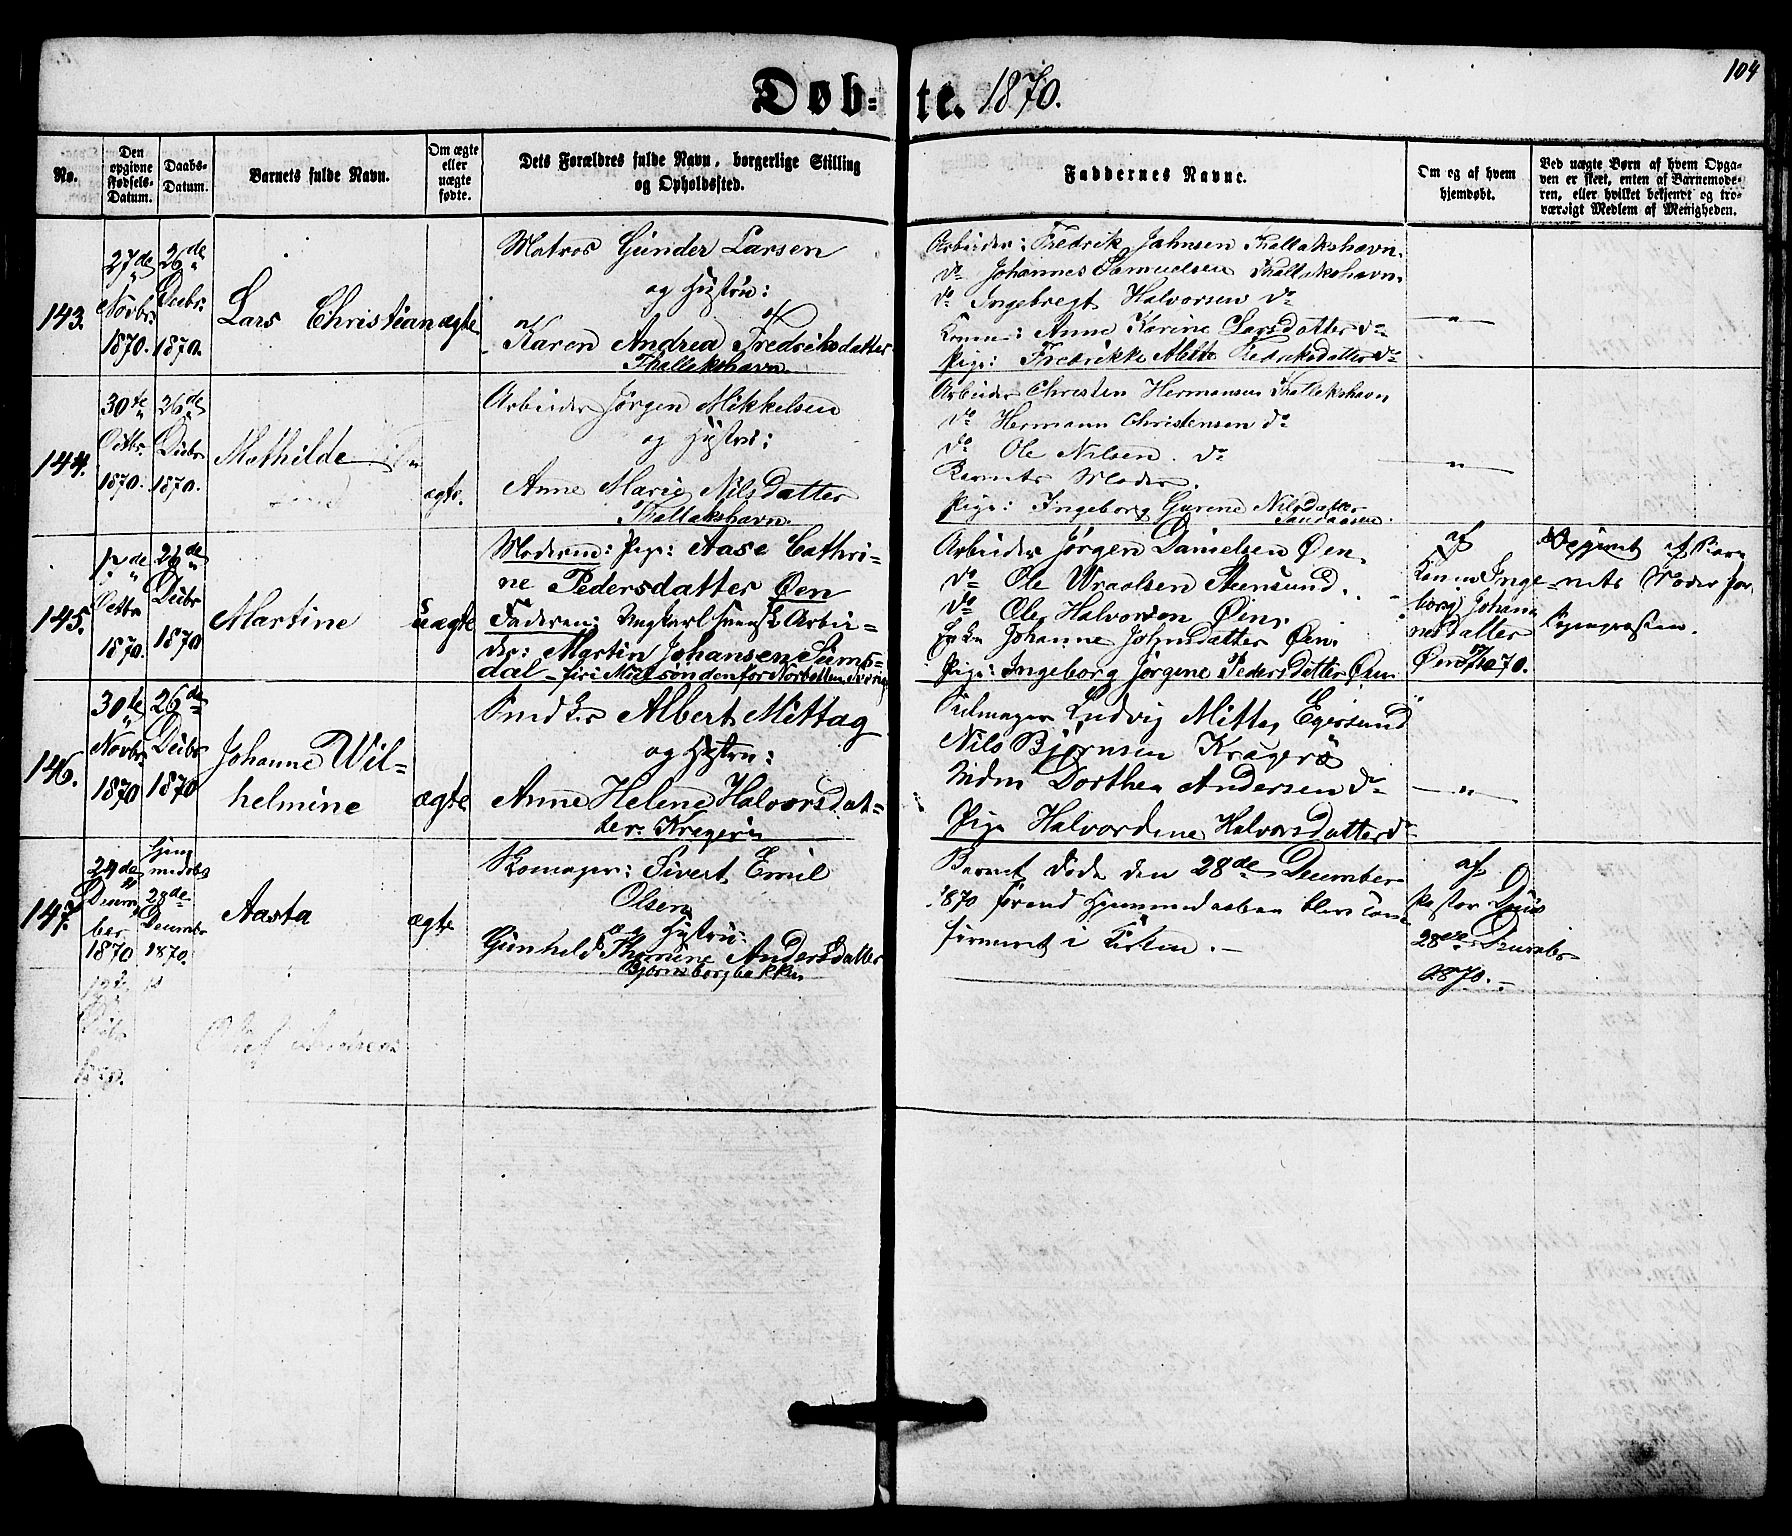 Døb-te. 1870.
104
No.
Den opgivne Fødsels-Datum.
Daabs-Datum.
Barnets fulde Navn.
Om ægte eller uægte fødte.
Dets Forældres fulde Navn, borgerlige Stilling
og Opholdssted.
Faddernes Navne.
Om og af hvem
hjemdøbt.
Ved uægte Børn af hvem Opga-
ven er skeet, enten af Barnemode-
ren, eller hvilket bekjendt og tro-
værdigt Medlem af Menigheden.
143.
27de
Novbr.
1870.
26de
Decbr.
1870.
Lars Christian
ægte
Matros Gunder Larsen
og Hustru:
Karen Andrea Fredriksdatter
Thallakshavn.
Arbeider: Fredrik Jahnsen Thallakshavn.
do Johannes Samuelsen Thallakshavn.
do Ingebregt Halvorsen do
Kone: Anne Karine Larsdatter do
Pige: Fredrikke Alette Fedriksdatter do
"
144.
30te
Octbr.
1870.
26de
Decbr
1870.
Mathilde
ægte.
Arbeider Jørgen Mikkelsen
og Hustru:
Anne Marie Nilsdatter
Thallakshavn.
Arbeider Christen Hermansen Thallakshavn
do Hermann Christensen do
do Ole Nilsen. do
Barnets Moder.
Pige: Ingeborg Gurine Nilsdatter
"
145.
26de
Decbr
1870
Martine
uægte
Moderen: Pige: Aase Cathri-
ne Pedersdatter Øen
Faderen: Ungkarl svensk Arbei-
der: Martin Johansen Sums-
dal
Arbeider Jørgen Danielsen Øen.
do Ole Wraalsen Stensund.
do Ole Halvorsen Øen.
Johanne Johnsdatter Øen.
Pige: Ingeborg Jørgine Pedersdatter Øen
af
Konen Inge-
borg Johan-
nesdatter
Øen 1870.
af Bar-
nets Moder for
146.
30te
Novbr
1870
26de
Decbr
1870
Johanne Wil-
helmine
ægte
Smed Albert Mittag
og Hustru:
Anne Helene Halvorsdat-
ter Kragerø
Ludvig Mittag Egersund
Nils Bjørnsen Kragerø
Dorthea Andersen do
Pige Halvordine Halvorsdatter do
"
147.
24de
Decem-
ber
1870
Hjem-
28de
Decembr
1870.
Aasta
ægte
Skomager: Sivert Emil
Olsen
og Hustru:
Gunhild Thomine Andersdatter
Bjørnsborgbakken
Barnet døde den 28de December
1870 førend Hjemmedaaben blev con-
firmeret i Kirken. -
af
Pastor
28de Decembr
1870. -
Olaf Andreas